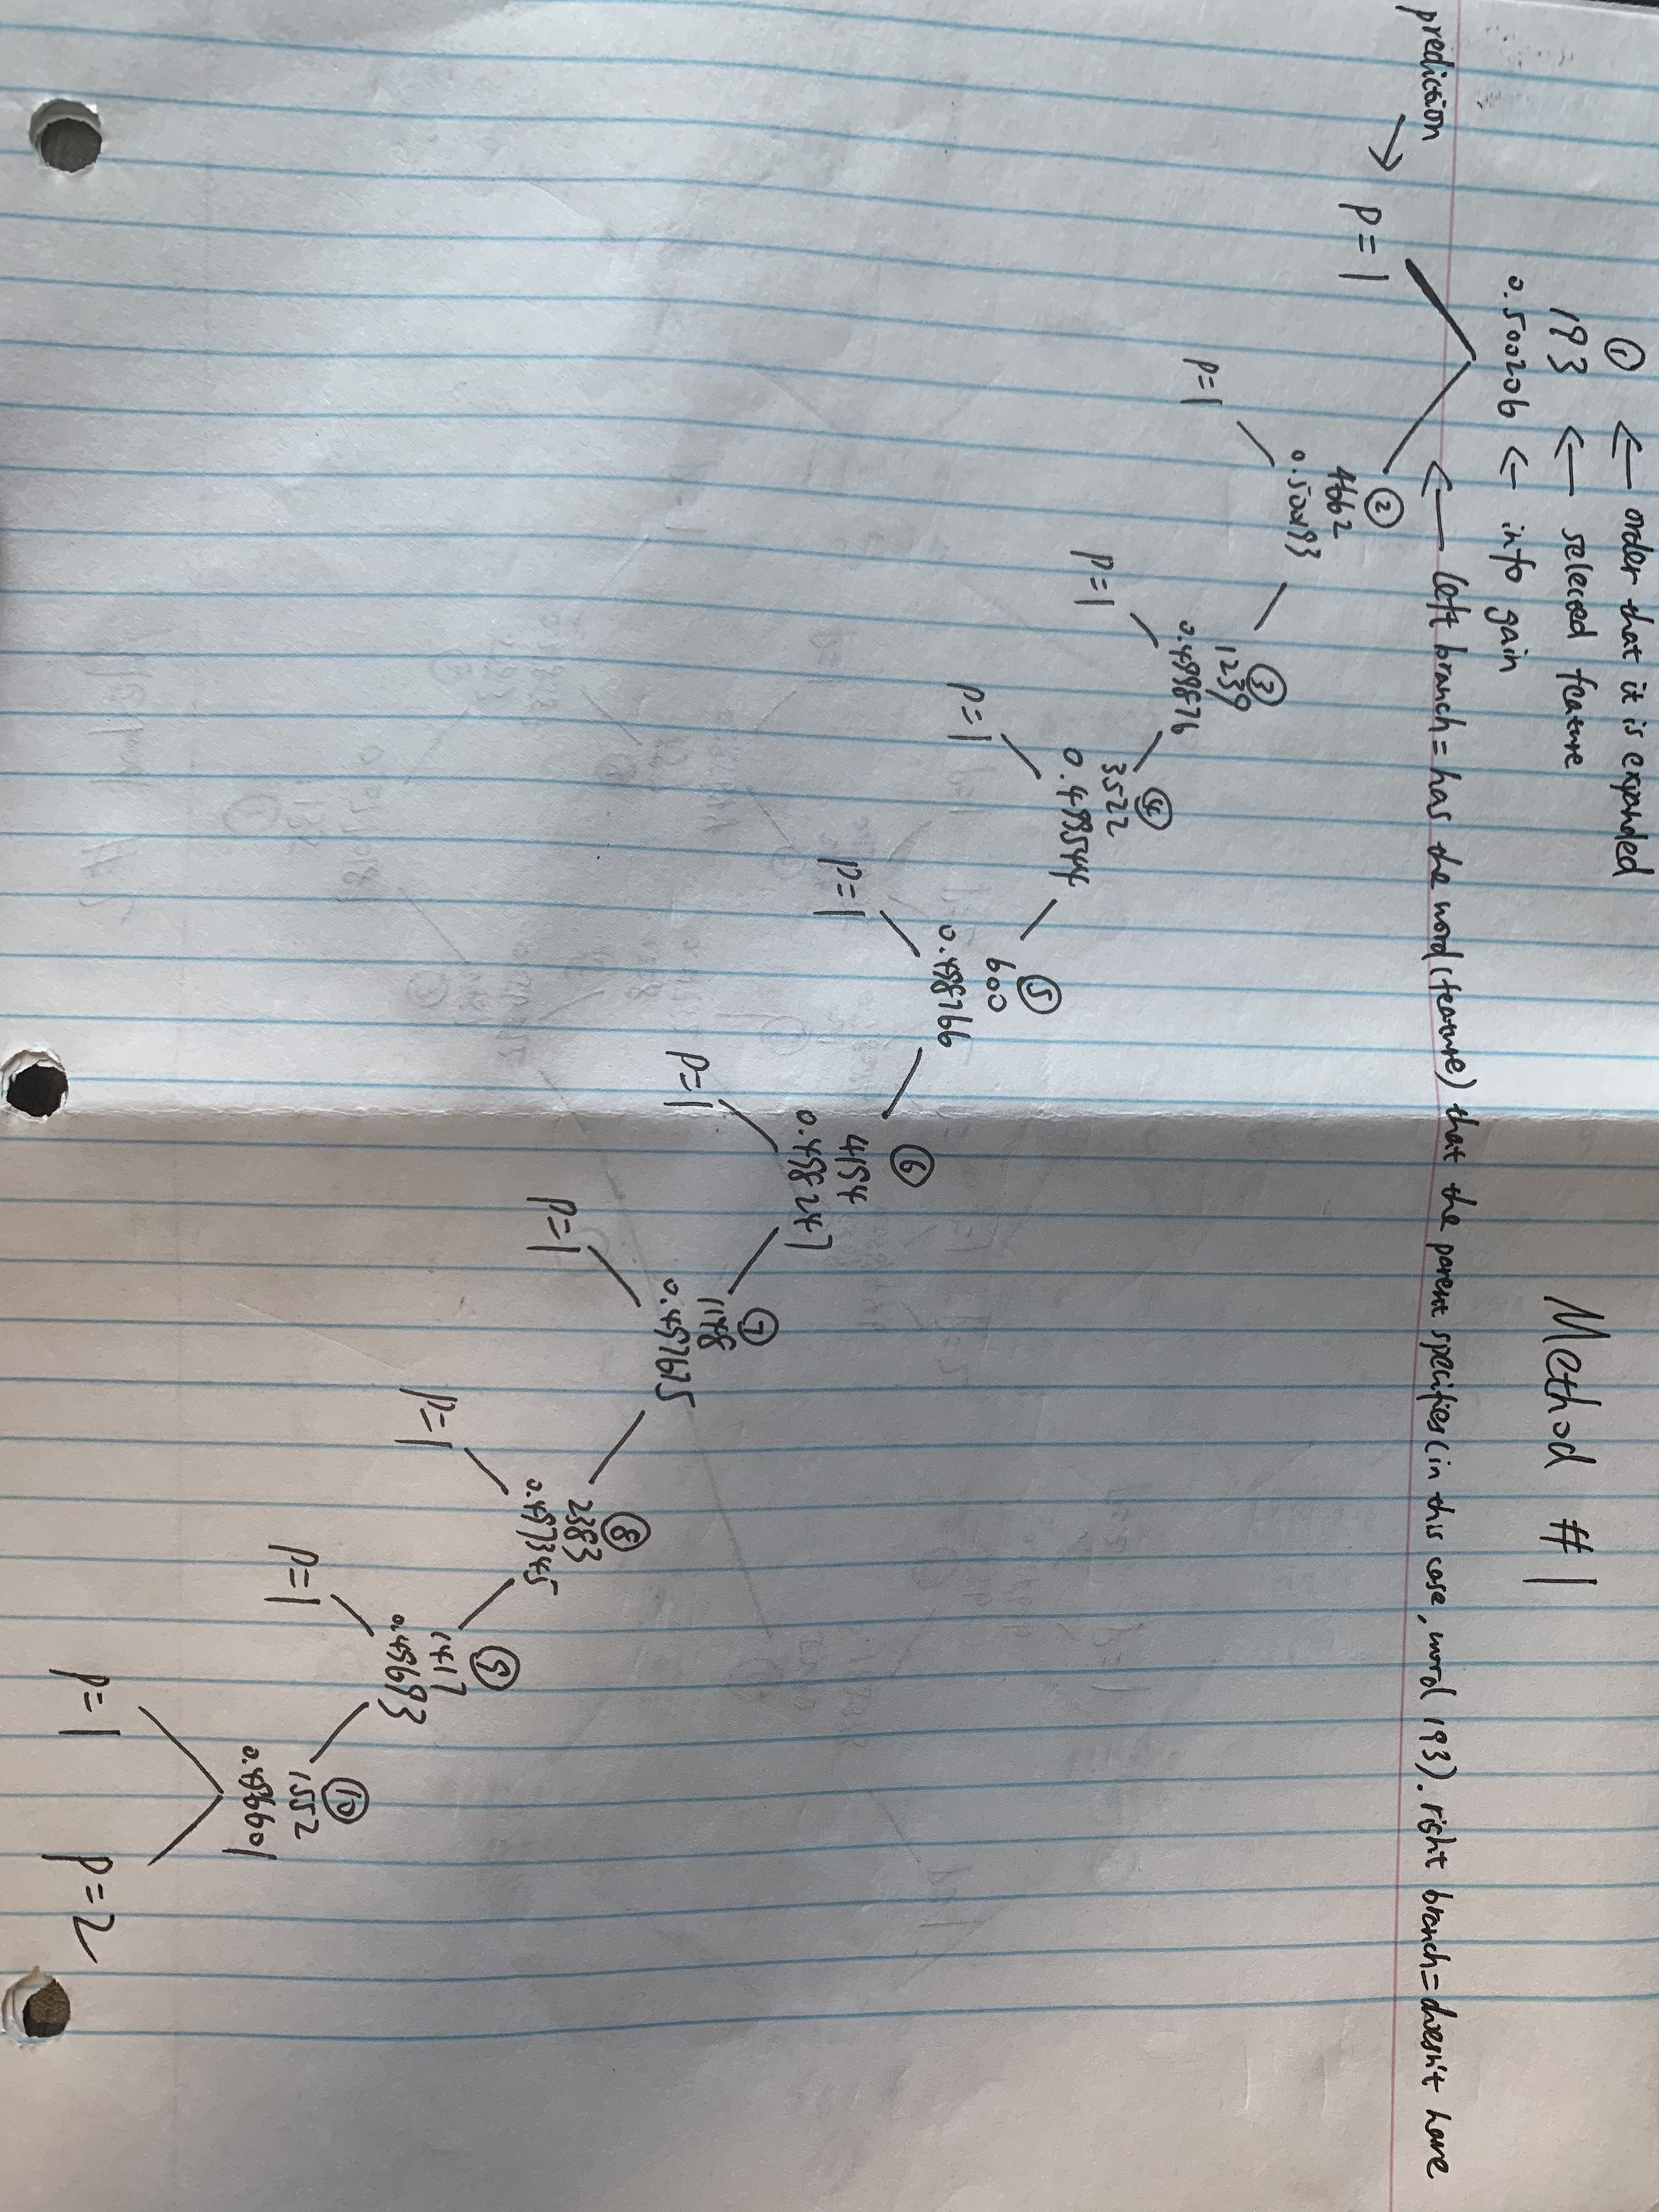 ① ← order that it is expanded
193 ← selected feature
0.500206 ← info gain
Method #1
← left branch = has the word (feature) that the parent specifies (in this case, word 193). right branch = doesn't have
prediction →
p=1
②
4662
0.500193
p=1
③
1239
0.499876
p=1
④
3522
0.499544
p=1
⑤
600
0.498766
p=1
⑥
4194
0.498247
p=1
⑦
1148
0.497675
p=1
⑧
2383
0.497345
p=1
⑨
1417
0.49693
p=1
⑩
1552
0.496601
p=1
p=2